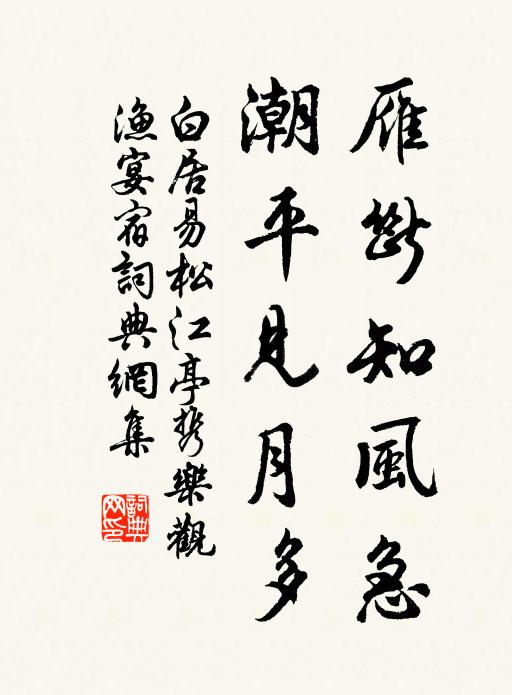 雁斷知風急
潮平見月多
白居易松江亭攜樂觀
漁宴宿詞典網集
詞典網印